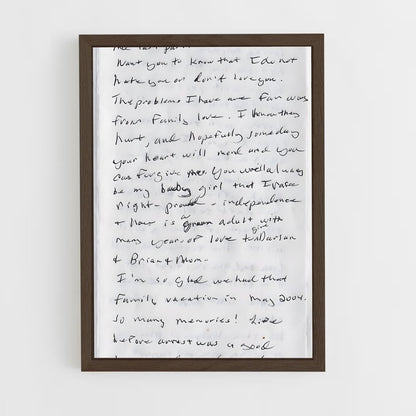 the last par
Want you to know that I do not
hate you or don't love you.
The problems I have are far way
from family love. I know they
hurt, and hopefully someday
your heart will mend and you
can forgive me. You will always
be my baby girl that I raise
right - proud - independence
+ now is a grown adult with
many years of love to give Darian
& Brian & Mom.
I'm so glad we had that
family vacation in May 2004.
so many memories! Life
before arrest was a good